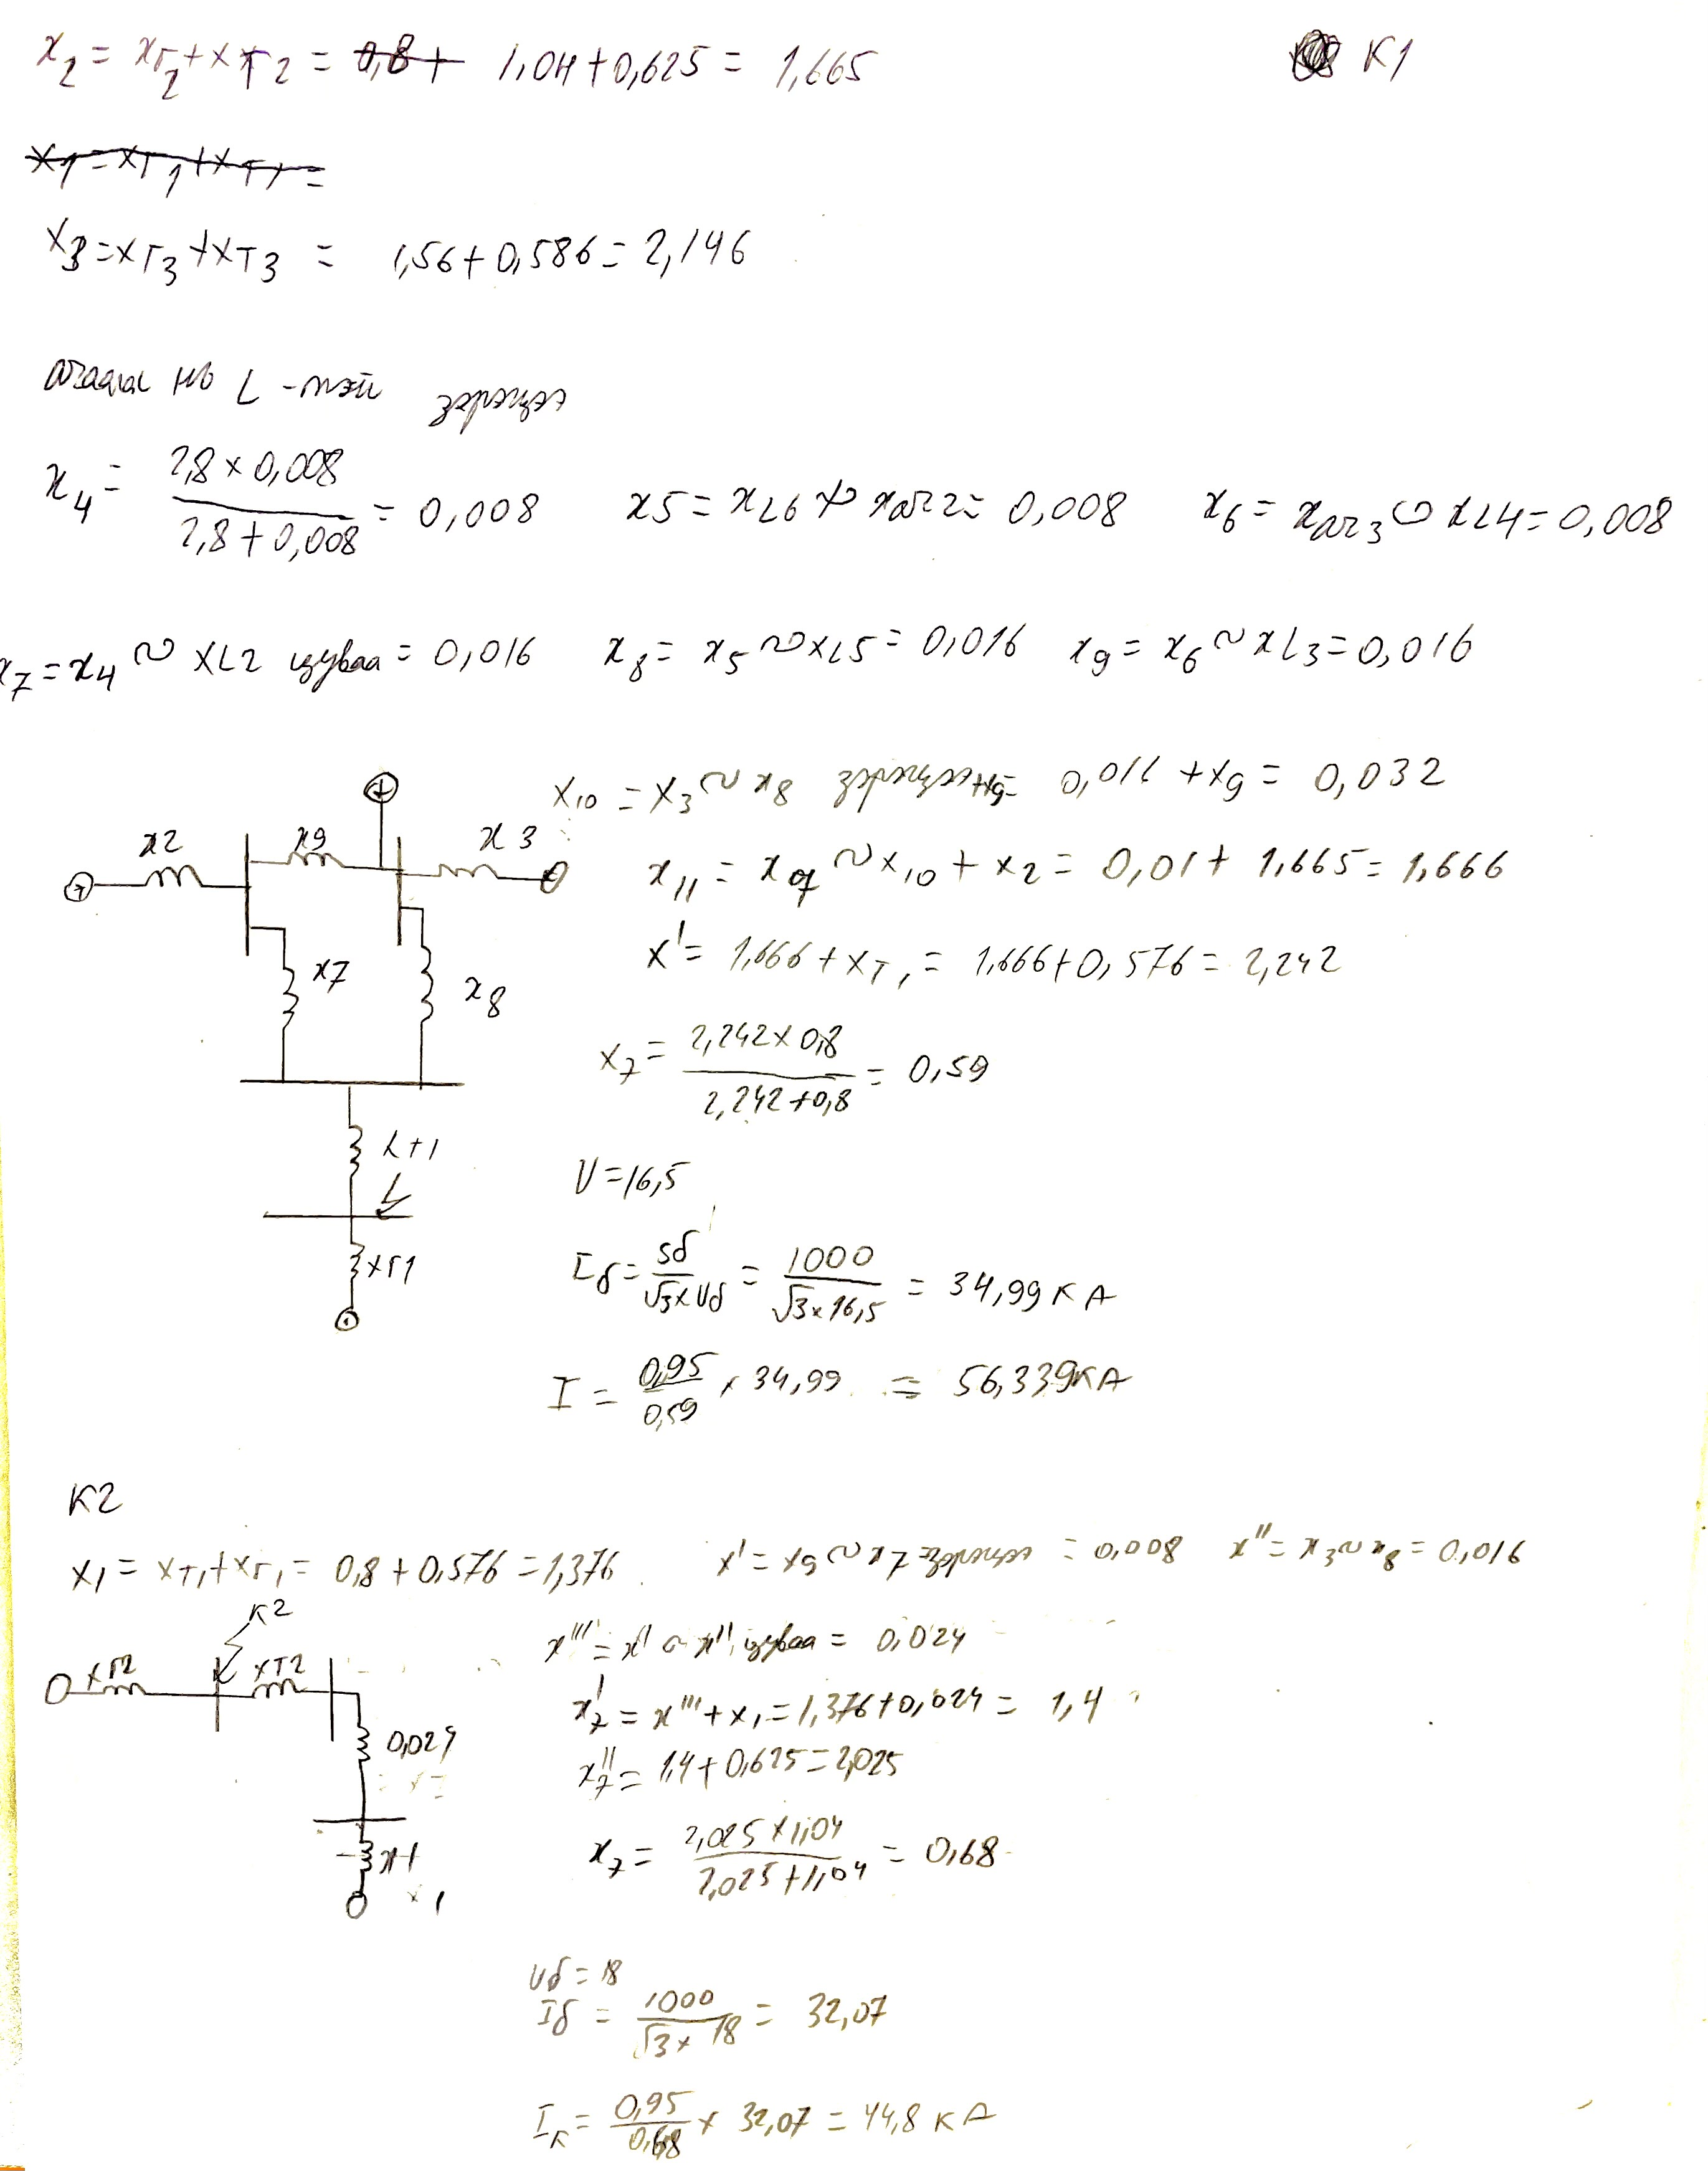 x₂ = xГ₂ + xТ2 = 0,8 + 1,04 + 0,625 = 1,665
K1
x1 = xГ1 + xТ1 =
x3 = xГ3 + xТ3 = 1,56 + 0,586 = 2,146
ачаалал нь L-тэй зэрэгцээ
x₄ = 2,8 × 0,008 / 2,8 + 0,008 = 0,008
x5 = xL6 ∾ xаг2 = 0,008
x₆ = xаг3 ∾ xL4 = 0,008
x₇ = x₄ ∾ xL2 цуваа = 0,016
x₈ = x₅ ∾ xL5 = 0,016
x₉ = x₆ ∾ xL3 = 0,016
x₁₀ = x₃ ∾ x₈ зэрэгцээ +x₉ = 0,016 + x₉ = 0,032
x2
x9
x3
x₁₁ = x₀₇ ∾ x₁₀ + x₂ = 0,01 + 1,665 = 1,666
x' = 1,666 + xТ₁ = 1,666 + 0,576 = 2,242
x7
x8
x₇ = 2,242 × 0,8 / 2,242 + 0,8 = 0,59
xт1
U = 16,5
xГ1
Iб = Sб / √3 × Uб = 1000 / √3 × 16,5 = 34,99 кА
I = 0,95 / 0,59 × 34,99 = 56,339 кА
K2
x₁ = xТ₁ + xГ₁ = 0,8 + 0,576 = 1,376
x' = x9 ∾ x7 зэрэгцээ = 0,008
x'' = x₃ ∾ x₈ = 0,016
K2
xГ2
xТ2
x''' = x' ∾ x'' цуваа = 0,024
x₇' = x''' + x₁ = 1,376 + 0,024 = 1,4
0,024
x₇'' = 1,4 + 0,625 = 2,025
x₇ = 2,025 × 1,04 / 2,025 + 1,04 = 0,68
x1
x1
Uб = 18
Iб = 1000 / √3 × 18 = 32,07
Iк = 0,95 / 0,68 × 32,07 = 44,8 кА